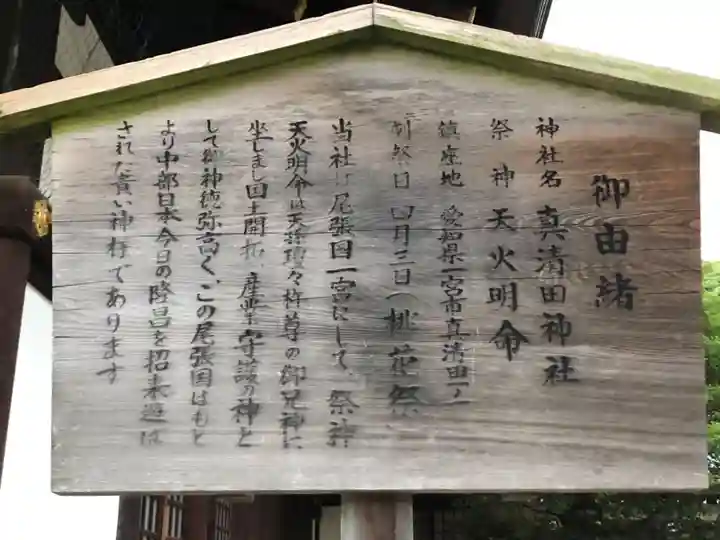 御由緒
神社名 真清田神社
祭神 天火明命
鎮座地 愛知県一宮市真清田一ノ
例祭日 四月三日(桃花祭
当社は尾張国一宮にして、祭神
天火明命は天孫瓊々杵尊の御兄神に
坐しまし国土開拓、産業守護の神と
して御神徳弥高く、この尾張国はもと
より中部日本今日の隆昌を招来遊ば
された貴い神様であります